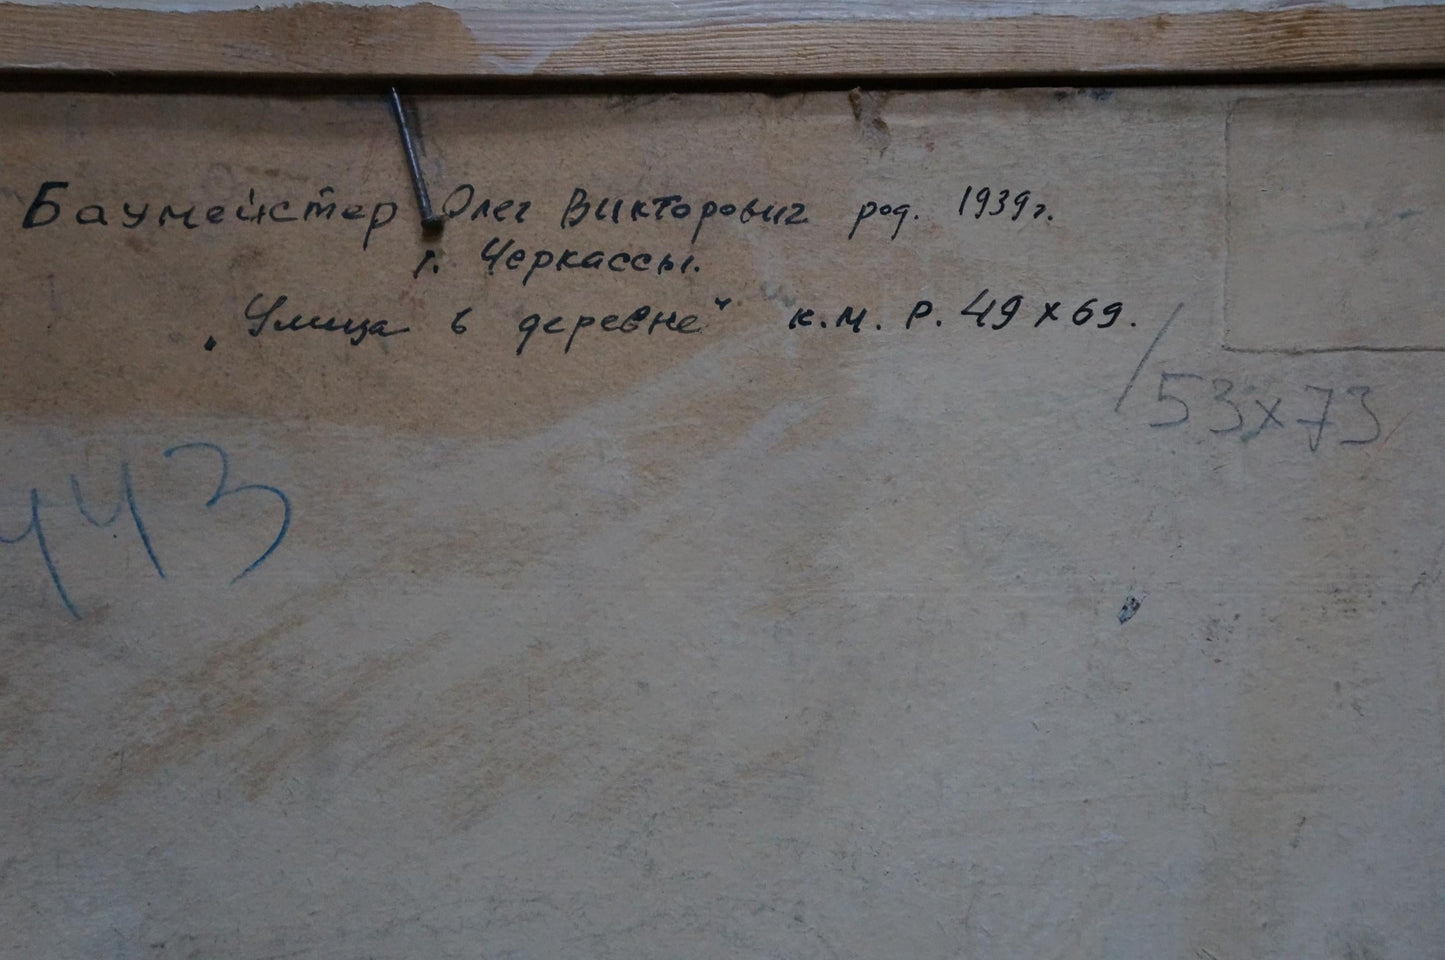 Баумейстер Олег Викторович род. 1939г.
г. Черкассы.
„Улица в деревне" к.м. Р. 49х69.
/53х73
443